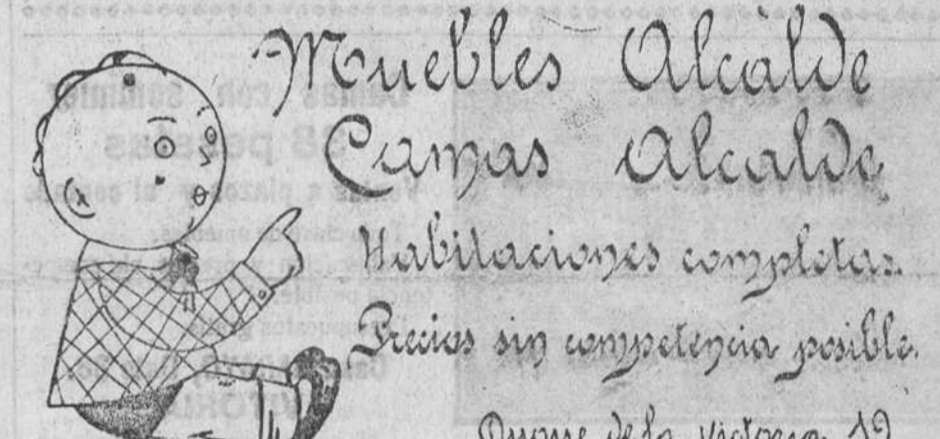 Muebles Alcalde
Camas Alcalde
Habitaciones completas.
Precios sin competencia posible.
Duque de la Victoria 12